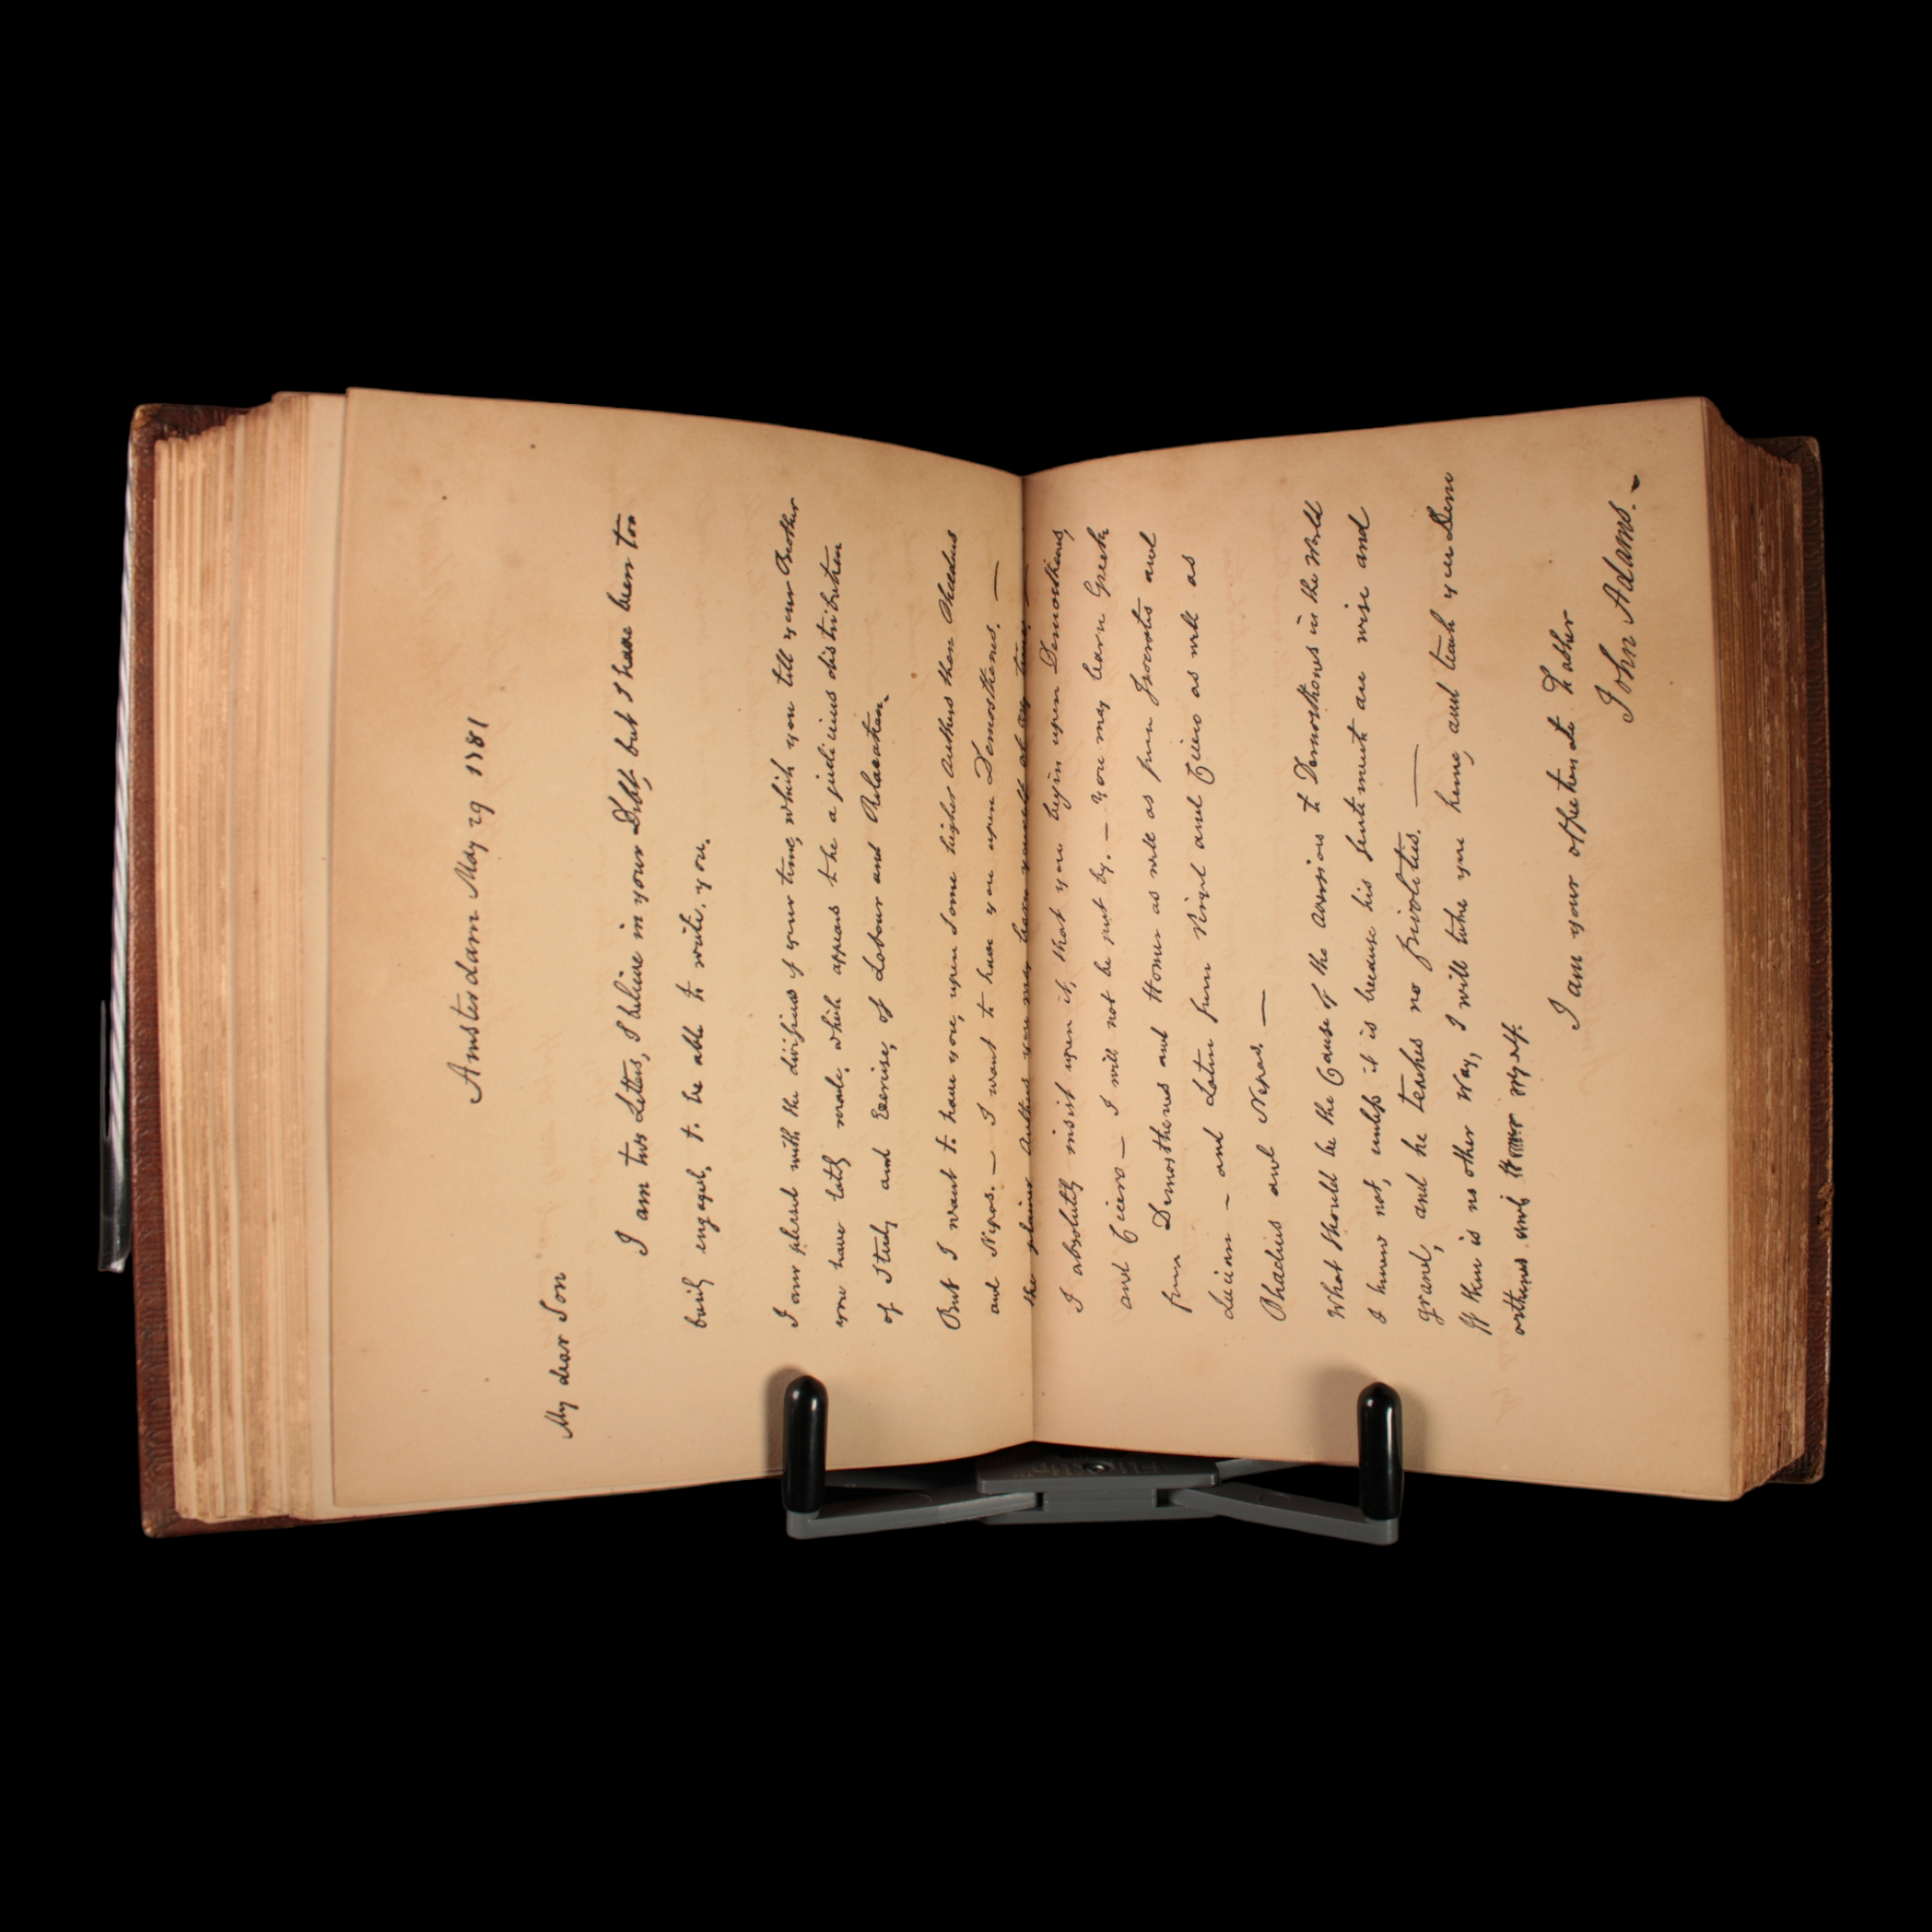 Amsterdam May 29 1781
My dear Son
I am two Letters, I believe in your Debt, but I have been too
busily engaged, to be able to write, you.
I am pleased with the division of your time, which you tell your Brother
you have lately made, which appears to be a judicious distribution
of Study and Exercise, of Labour and Relaxation.
But I want to have you, upon some higher Authors than Phædrus
and Nepos. — I want to have you upon Demosthenes. —
the plainer Authors you may learn yourself at any time. —
I absolutely insist upon it, that you begin upon Demosthenes,
and Cicero — I will not be put by. — You may learn Greek
from Demosthenes and Homer as well as from Isocrates and
Lucian — and Latin from Virgil and Cicero as well as
Phædrus and Nepos. —
What should be the Cause of the aversion to Demosthenes in the World
I know not, unless it is because his sentiments are wise and
grand, and he teaches no frivolities. —
If there is no other Way, I will take you home, and teach you Demosthenes
and Homer myself.
I am your affectionate Father
John Adams. -